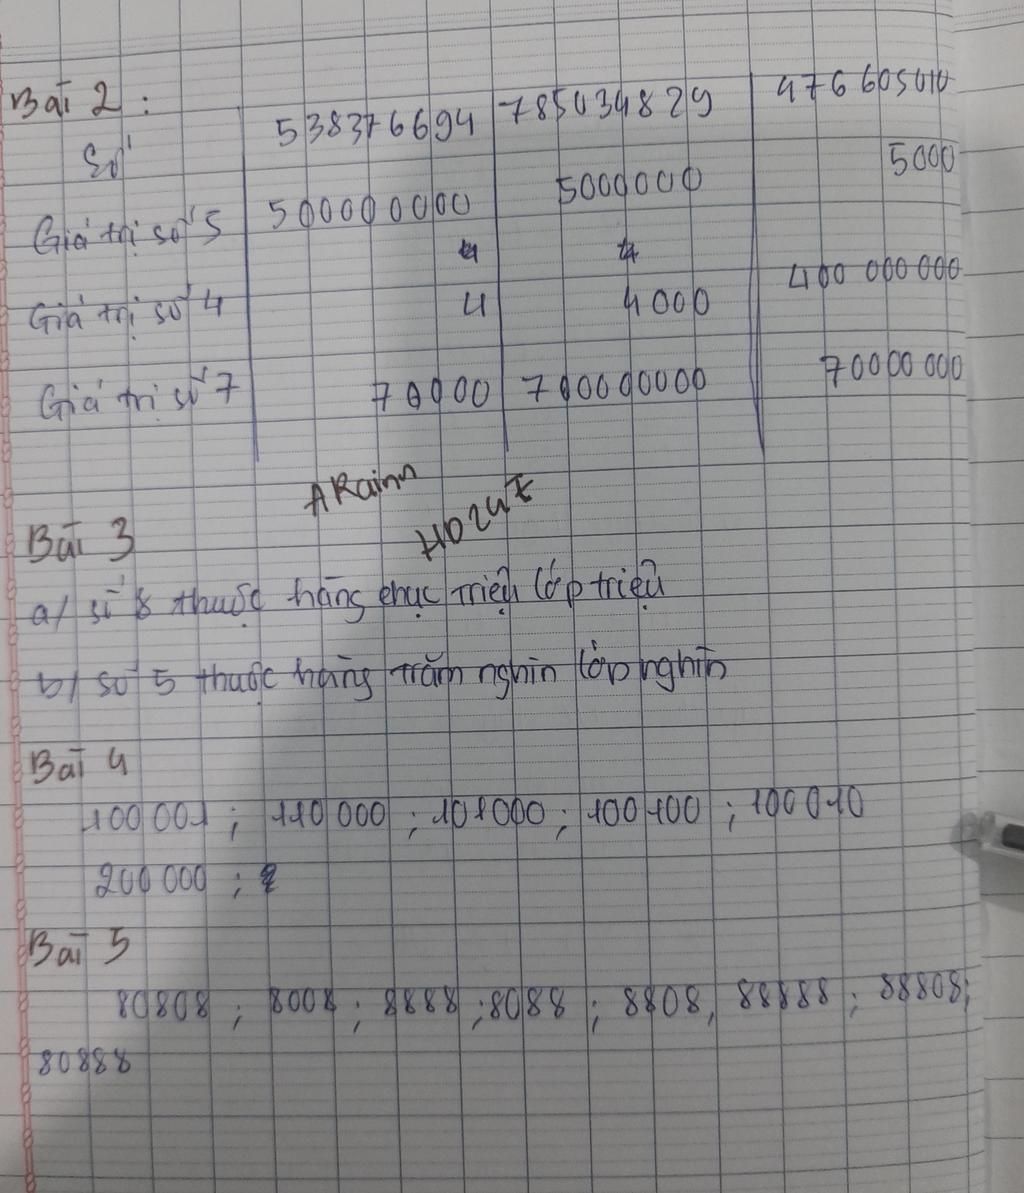 Bài 2:
Số 538376694 785034829 476605010
Giá trị số 5 500000000 5000000 5000
4 4
Giá trị số 4 4 4000 400 000 000
Giá trị số 7 70000 700000000 70000 000
ARainn
Bài 3
a/ số 8 thuộc hàng chục triệu lớp triệu
b/ số 5 thuộc hàng trăm nghìn lớp nghìn
Bài 4
100 001 ; 110 000 ; 101000 ; 100 100 ; 100 010
200 000 ;
Bài 5
80808 ; 8008 ; 8888 ; 8808 ; 8088 ; 88888 ; 88808 ;
80888